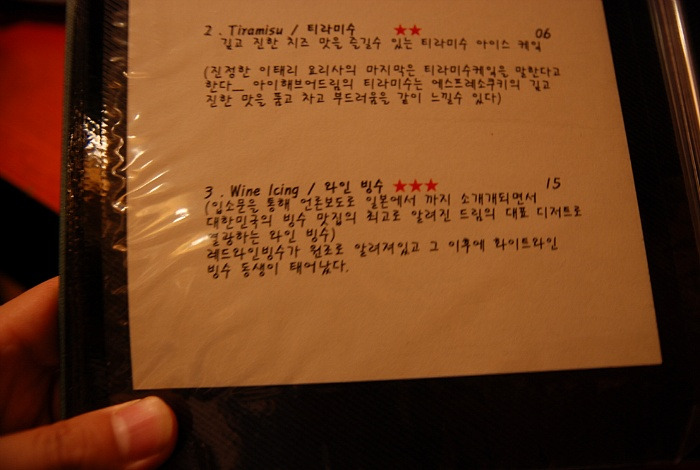 2. Tiramisu / 티라미수 ★★ 06
깊고 진한 치즈 맛을 즐길수 있는 티라미수 아이스 케잌
(진정한 이태리 요리사의 마지막은 티라미수케잌을 말한다고
한다__ 아이해브어드림의 티라미수는 에스프레소쿠키의 깊고
진한 맛을 품고 차고 부드러움을 같이 느낄수 있다)
3. Wine Icing / 와인 빙수 ★★★ 15
(입소문을 통해 언론보도로 일본에서 까지 소개개되면서
대한민국의 빙수 맛집의 최고로 알려진 드림의 대표 디저트로
열광하는 와인 빙수)
레드와인빙수가 원조로 알려져있고 그 이후에 화이트와인
빙수 동생이 태어났다.